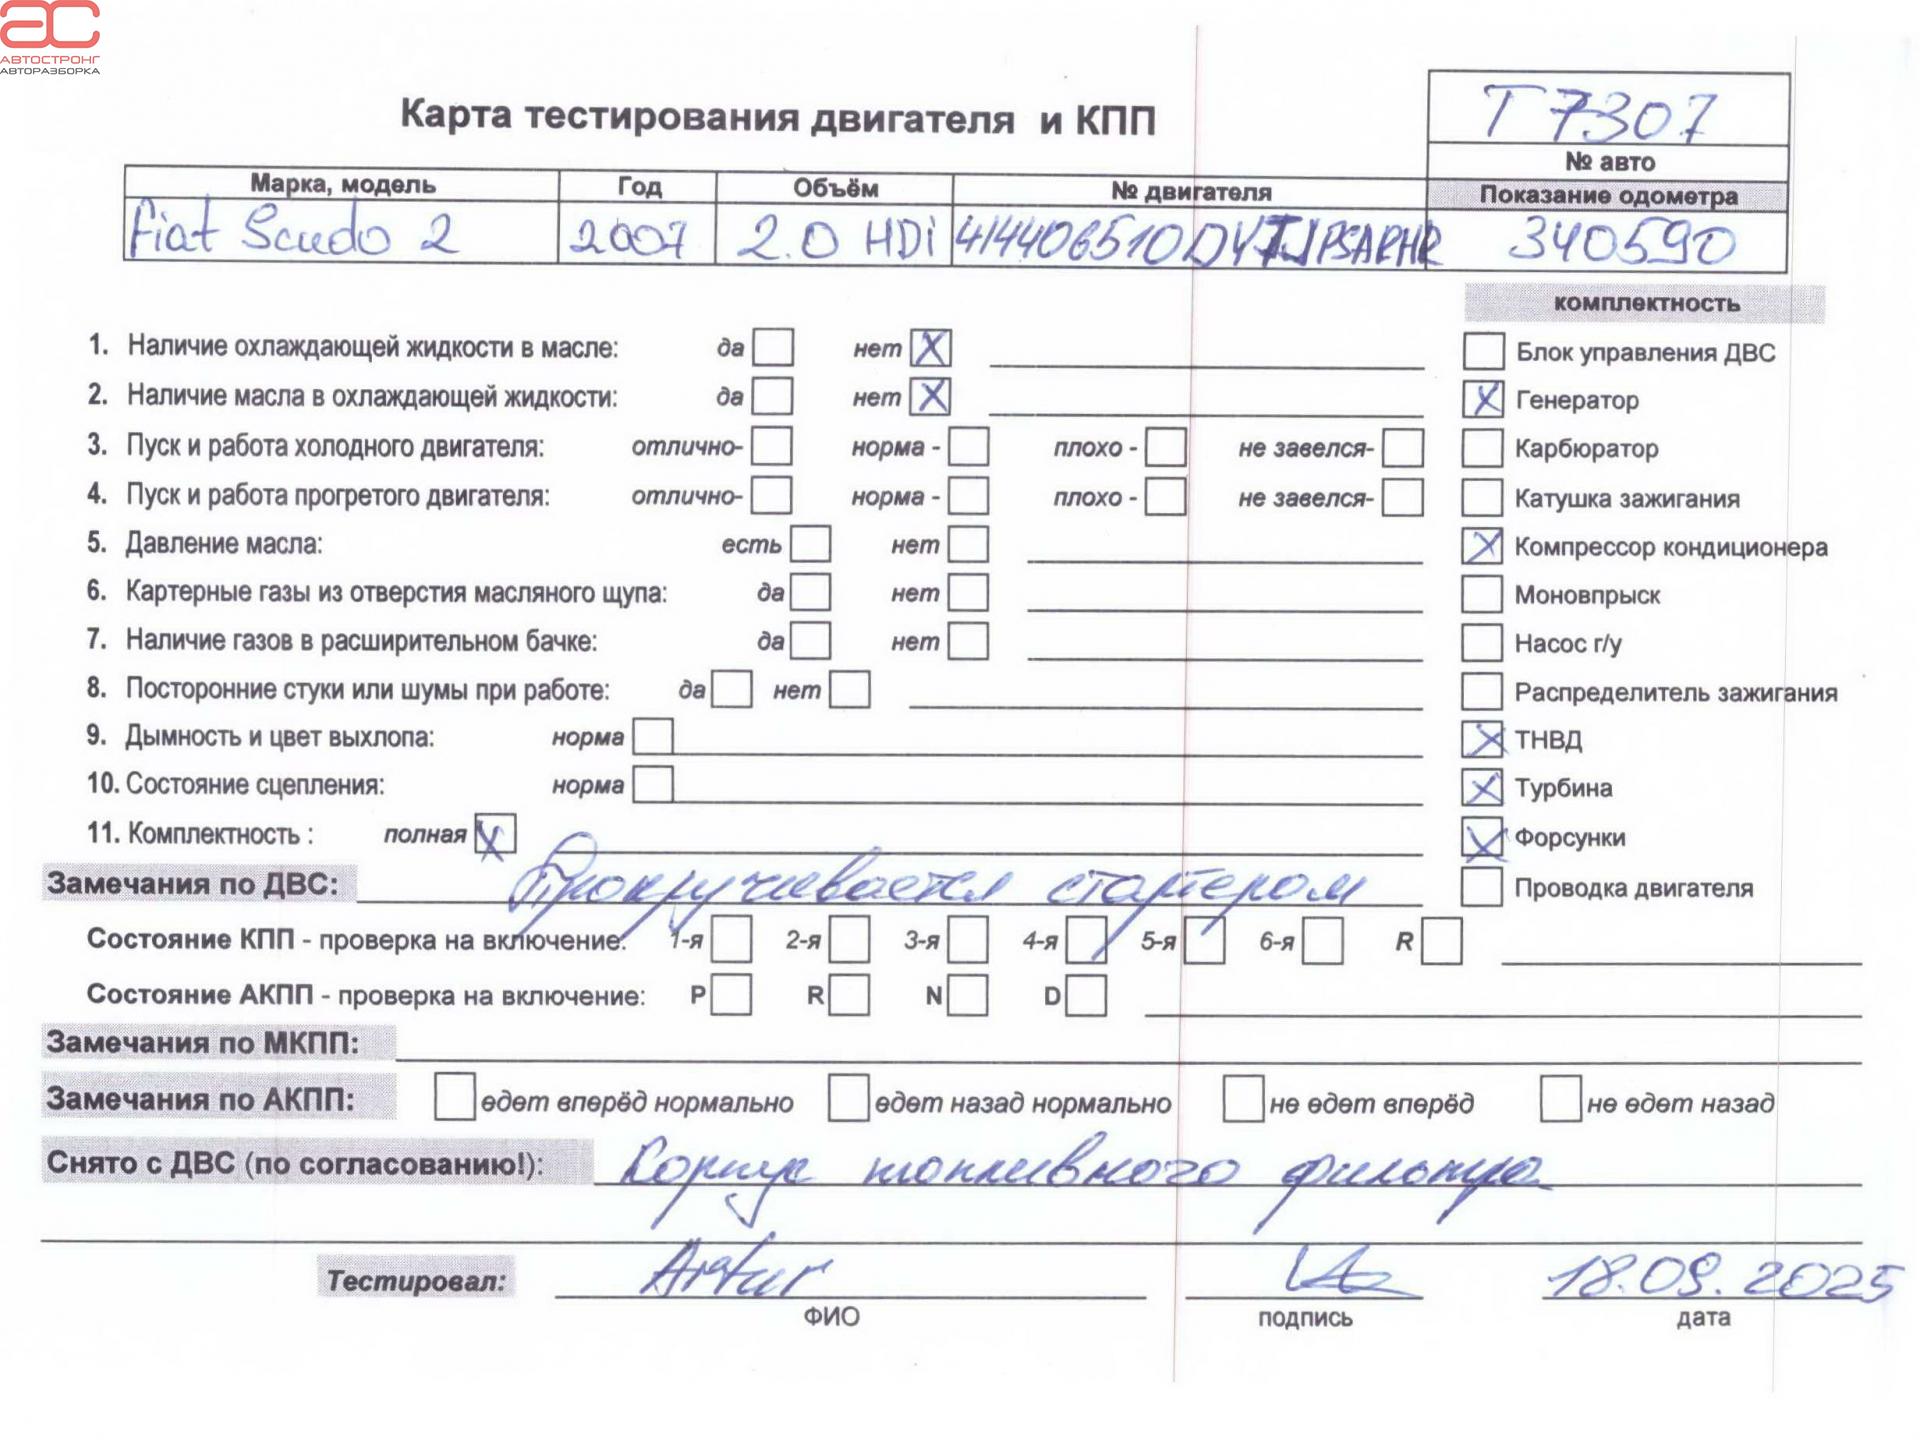 АС
АВТОСТРОНГ
АВТОРАЗБОРКА
Карта тестирования двигателя и КПП
Т 7307
№ авто
Марка, модель Год Объём № двигателя Показание одометра
Fiat Scudo 2 2007 2.0 HDi 340590
комплектность
1. Наличие охлаждающей жидкости в масле: да нет X
Блок управления ДВС
2. Наличие масла в охлаждающей жидкости: да нет X
X Генератор
3. Пуск и работа холодного двигателя: отлично- норма - плохо - не завелся-
Карбюратор
4. Пуск и работа прогретого двигателя: отлично- норма - плохо - не завелся-
Катушка зажигания
5. Давление масла: есть нет
X Компрессор кондиционера
6. Картерные газы из отверстия масляного щупа: да нет
Моновпрыск
7. Наличие газов в расширительном бачке: да нет
Насос г/у
8. Посторонние стуки или шумы при работе: да нет
Распределитель зажигания
9. Дымность и цвет выхлопа: норма
X ТНВД
10. Состояние сцепления: норма
X Турбина
11. Комплектность : полная X
X Форсунки
Замечания по ДВС: Прокручивается стартером
Проводка двигателя
Состояние КПП - проверка на включение: 1-я 2-я 3-я 4-я 5-я 6-я R
Состояние АКПП - проверка на включение: P R N D
Замечания по МКПП:
Замечания по АКПП: едет вперёд нормально едет назад нормально не едет вперёд не едет назад
Снято с ДВС (по согласованию!): Корпус топливного фильтра
Тестировал: Artur 18.09.2025
ФИО подпись дата